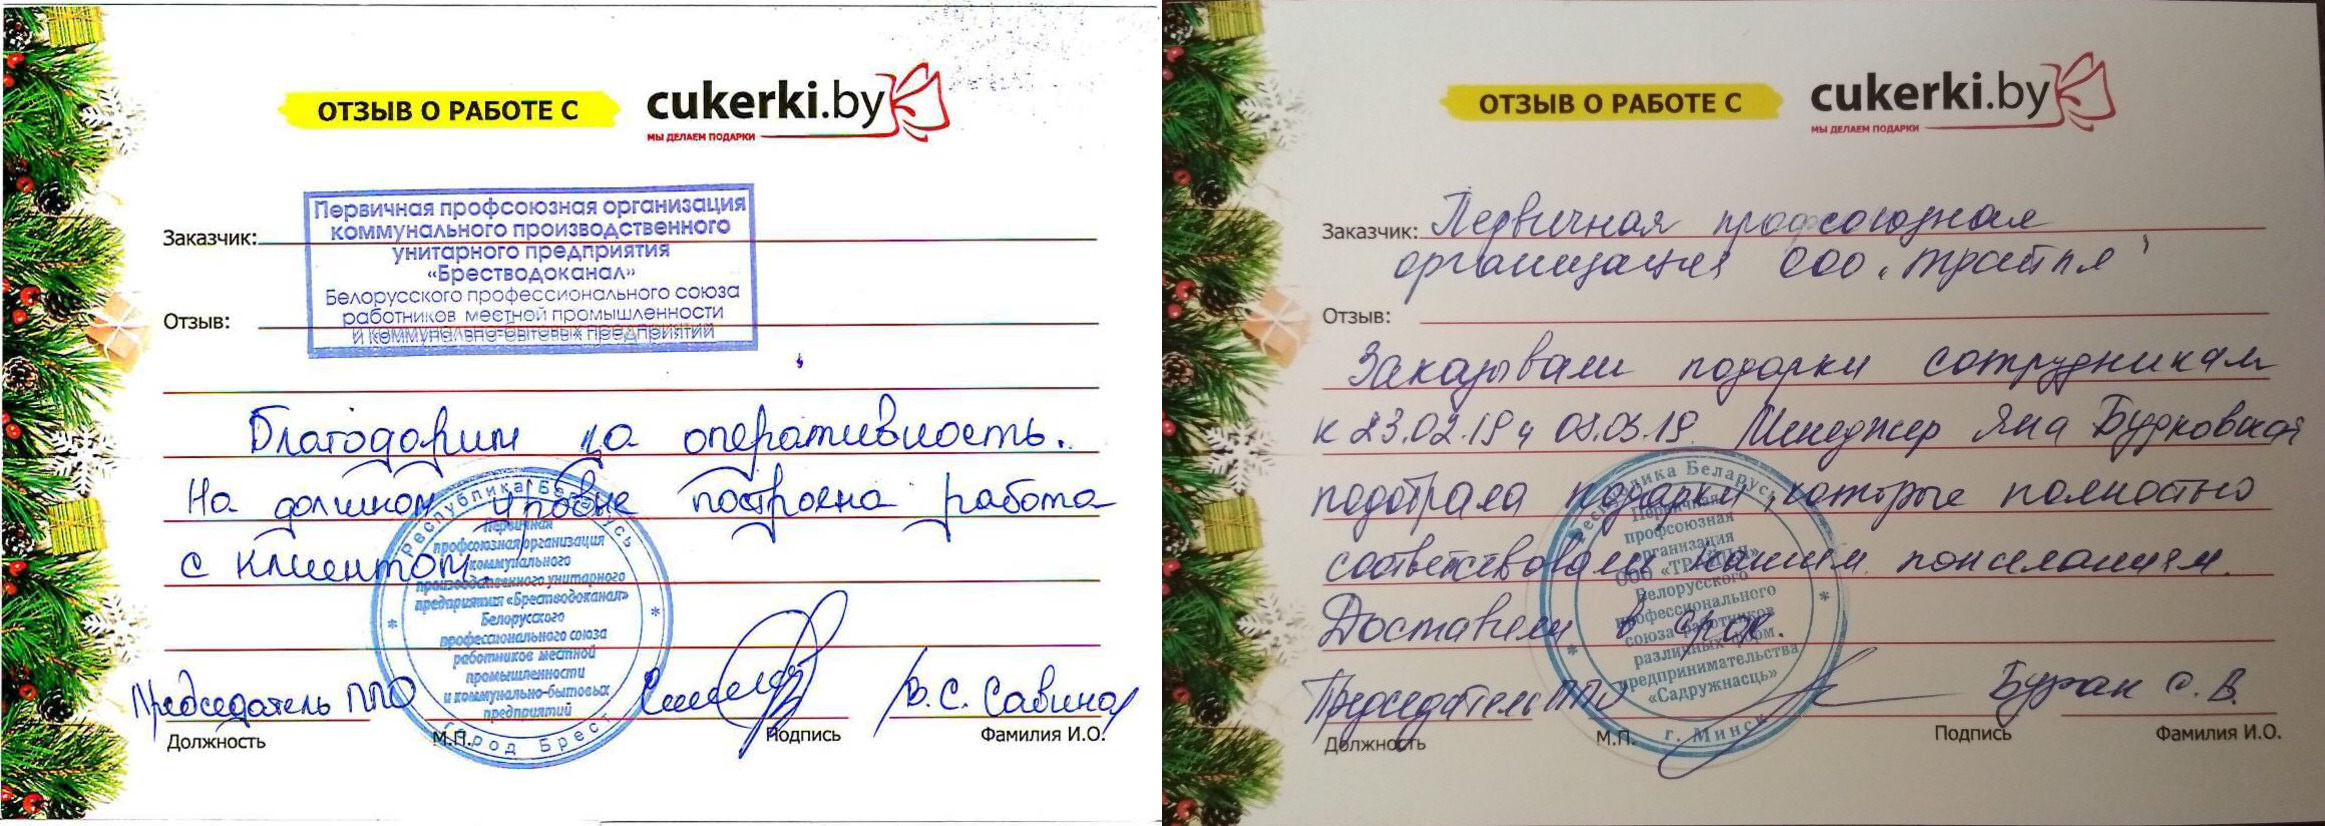 ОТЗЫВ О РАБОТЕ С
cukerki.by
МЫ ДЕЛАЕМ ПОДАРКИ
Заказчик:
Первичная профсоюзная организация
коммунального производственного
унитарного предприятия
«Брестводоканал»
Белорусского профессионального союза
работников местной промышленности
и коммунально-бытовых предприятий
Отзыв:
Благодарим за оперативность.
На должном уровне построена работа
с клиентом.
Республика Беларусь
Первичная
профсоюзная организация
коммунального
производственного унитарного
предприятия «Брестводоканал»
Белорусского
профессионального союза
работников местной
промышленности
и коммунально-бытовых
предприятий
город Брест
Председатель ППО
В.С. Савина
Должность
М.П.
Подпись
Фамилия И.О.
ОТЗЫВ О РАБОТЕ С
cukerki.by
МЫ ДЕЛАЕМ ПОДАРКИ
Заказчик: Первичная профсоюзная
организация ООО „Трайпл"
Отзыв:
Заказывали подарки сотрудникам
к 23.02.19 и 08.03.19. Менеджер Яна
подобрала подарки, которые полностью
соответствовали нашим пожеланиям.
Доставили в срок.
Республика Беларусь
Первичная
профсоюзная
организация
ООО «ТРАЙПЛ»
Белорусского
профессионального
союза работников
различных форм
предпринимательства
«Садружнасць»
г. Минск
Председатель ППО
С. В.
Должность
М.П.
Подпись
Фамилия И.О.